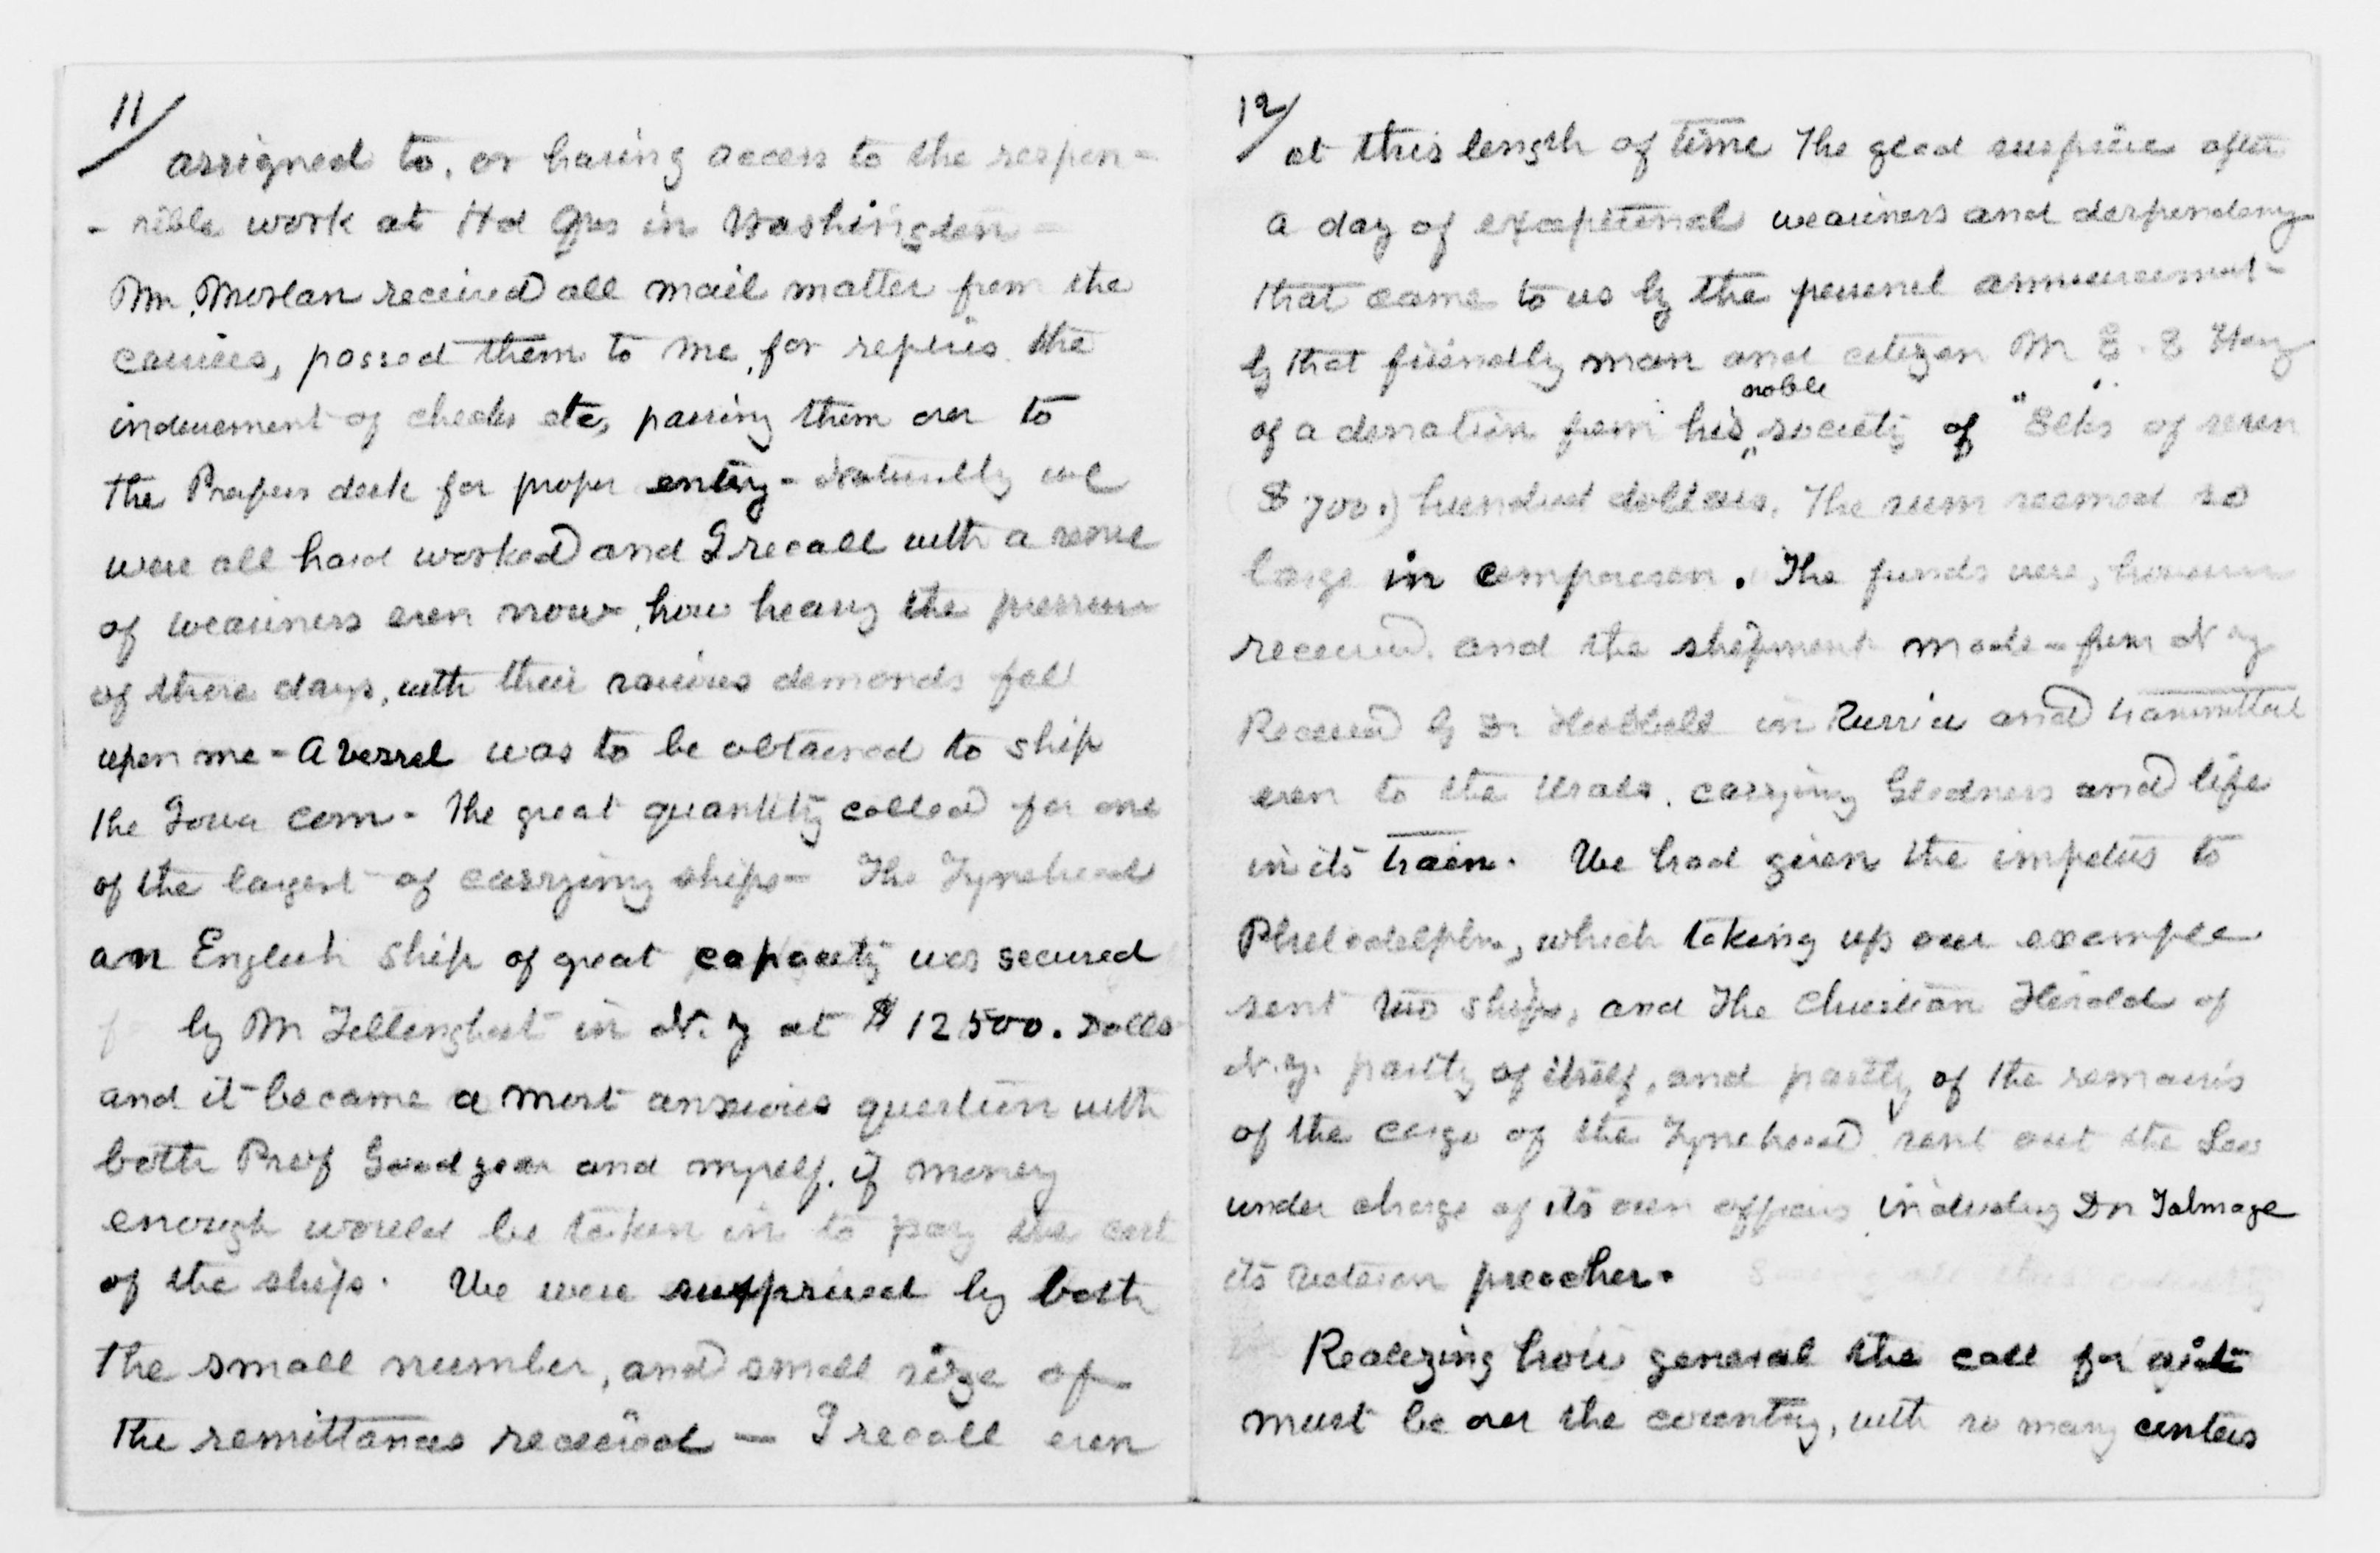 11/
assigned to, or having access to the respon-
- sible work at Hd Qrs in Washington -
Mr. Morlan received all mail matter from the
carriers, passed them to me, for replies the
indorsement of checks etc, passing them over to
the Profess desk for proper entry - Naturally we
were all hard worked and I recall with a sense
of weariness even now, how heavy the pressure
of these days, with their various demands fell
upon me - A vessel was to be obtained to ship
the Iowa corn - The great quantity called for one
of the largest of carrying ships - The Tynehead
an English ship of great capacity was secured
by Mr Tillinghast in N. Y at $ 12 500. Dolls
and it became a most anxious question with
both Prof Goodyear and myself, if money
enough would be taken in to pay the cost
of the ship. We were surprised by both
the small number, and small size of
the remittances received — I recall even
12/
at this length of time The glad surprise after
a day of exceptional weariness and despondency
that came to us by the personal announcement -
by that friendly man and citizen Mr E. E Hay
noble
of a donation from his society of "Elks" of seven
$ 700.) hundred dollars. The sum seemed so
large in comparison. The funds were, however
received, and the shipment made - from N Y
Received by Dr Hubbell in Russia and transmitted
even to the Urals, carrying Gladness and life
in its train. We had given the impetus to
Philadelphia, which taking up our example
sent two ships, and The Christian Herald of
N.Y. partly of itself, and partly of the remains
of the cargo of the Tynehead sent out the Leo
under charge of its own officers including Dr Talmage
its veteran preacher.
Realizing how general the call for aid
must be over the country, with so many centers